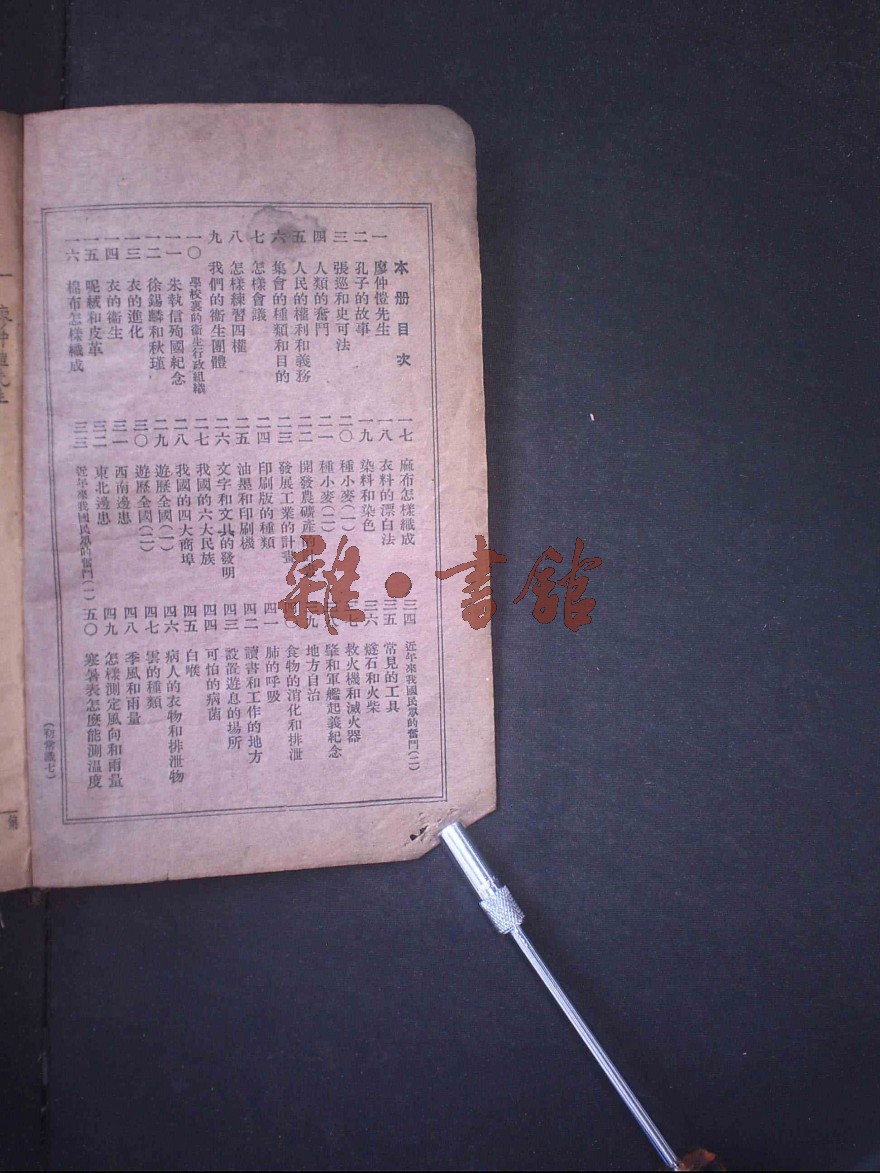 本册目次
一 廖仲愷先生
二 孔子的故事
三 張巡和史可法
四 人類的奮鬥
五 人民的權利和義務
六 集會的種類和目的
七 怎樣會議
八 怎樣練習四權
九 我們的衞生團體
一〇 學校裏的衞生行政組織
一一 朱執信殉國紀念
一二 徐錫麟和秋瑾
一三 衣的進化
一四 衣的衞生
一五 呢絨和皮革
一六 棉布怎樣織成
一七 麻布怎樣織成
一八 衣料的漂白法
一九 染料和染色
二〇 種小麥(一)
二一 種小麥(二)
二二 開發農礦產的
二三 發展工業的計畫
二四 印刷版的種類
二五 油墨和印刷機
二六 文字和文具的發明
二七 我國的六大民族
二八 我國的四大商埠
二九 遊歷全國(一)
三〇 遊歷全國(二)
三一 西南邊患
三二 東北邊患
三三 近年來我國民眾的奮鬥(一)
三四 近年來我國民眾的奮鬥(二)
三五 常見的工具
三六 燧石和火柴
救火機和滅火器
肇和軍艦起義紀念
地方自治
食物的消化和排泄
四一 肺的呼吸
四二 讀書和工作的地方
四三 設置遊息的場所
四四 可怕的病菌
四五 白喉
四六 病人的衣物和排泄物
四七 雲的種類
四八 季風和雨量
四九 怎樣測定風向和雨量
五〇 寒暑表怎麼能測溫度
(初常識七)
雜·書館